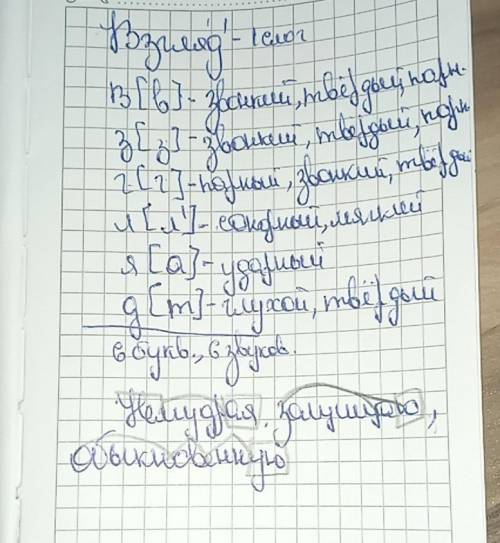 Взгляд - 1 слог
в [в] - звонкий, твёрдый, парн.
з [з] - звонкий, твердый, парн
г [г] - парный, звонкий, твёрды
л [л'] - сонорный, мягкий
я [а] - ударный
д [т] - глухой, твёрдый
6 букв., 6 звуков.
Немудрая, залушную,
обыкновенную